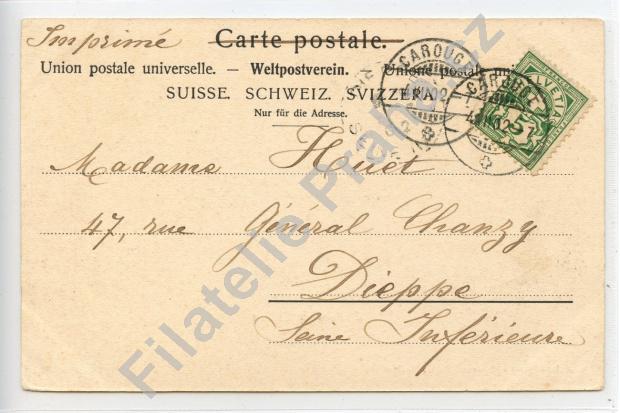 Imprimé Carte postale.
Union postale universelle. — Weltpostverein. — Unione postale
SUISSE. SCHWEIZ. SVIZZERA.
Nur für die Adresse.
CAROUGE
CAROUGE
HELVETIA
5
Madame Huet
47, rue Général Chanzy
Dieppe
Seine Inférieure
Filatelie Praha.cz